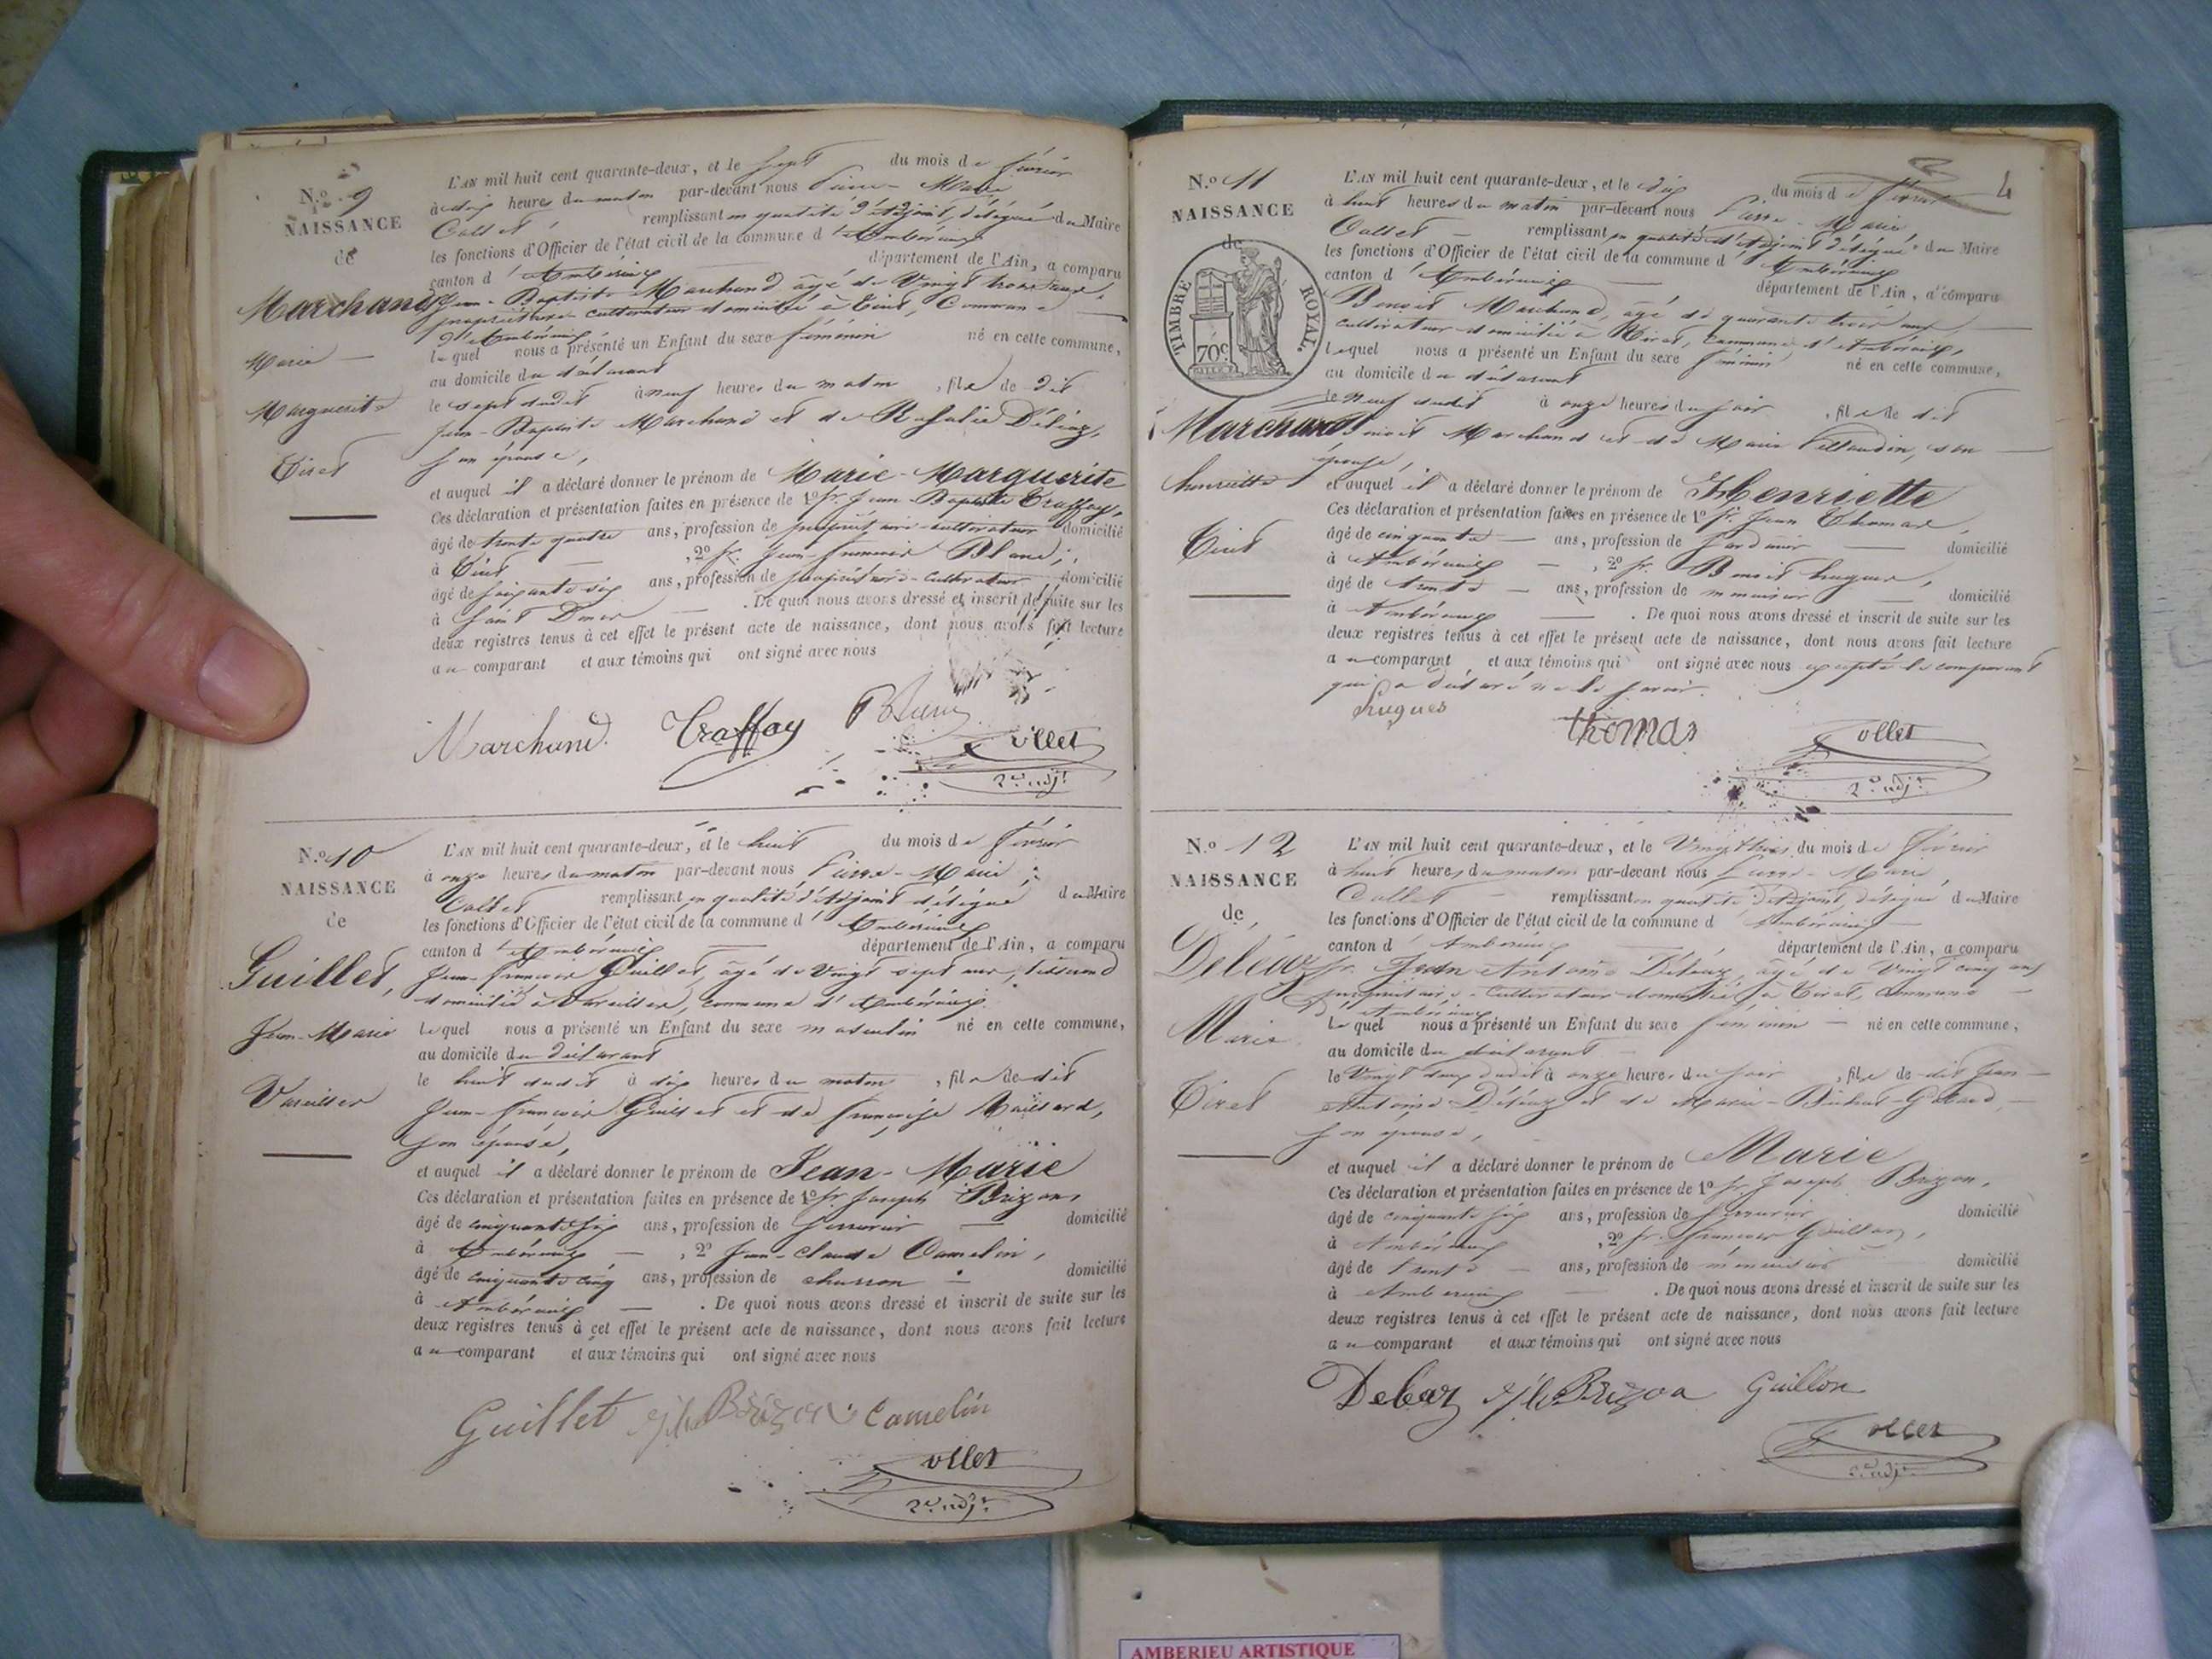 N.º 9
NAISSANCE
de
Marchand
Marie
Marguerite
Tiret
L'AN mil huit cent quarante-deux, et le sept du mois de février
à dix heures du matin par-devant nous Pierre-Marie
Collet remplissant en qualité d'adjoint, délégué du Maire
les fonctions d'Officier de l'état civil de la commune d'Ambérieux
canton d'Ambérieux département de l'Ain, a comparu
Jean-Baptiste Marchand âgé de Vingt trois ans,
propriétaire cultivateur domicilié à Tiret, Commune
d'Ambérieux
lequel nous a présenté un Enfant du sexe féminin né en cette commune,
au domicile du déclarant
le sept dudit à neuf heures du matin, fille de dit
Jean-Baptiste Marchand et de Rosalie Déléaz,
son épouse,
et auquel il a déclaré donner le prénom de Marie-Marguerite
Ces déclaration et présentation faites en présence de 1º Sr. Jean-Baptiste Traffay,
âgé de trente quatre ans, profession de propriétaire-cultivateur domicilié
à Tiret, 2º Sr. Jean-François Blanc,
âgé de soixante six ans, profession de propriétaire-cultivateur domicilié
à Saint Denis. De quoi nous avons dressé et inscrit de suite sur les
deux registres tenus à cet effet le présent acte de naissance, dont nous avons fait lecture
au comparant et aux témoins qui ont signé avec nous
Marchand. Traffay Blanc Collet
2e adjt
N.º 10
NAISSANCE
de
Guillet,
Jean-Marie
Vareilles
L'AN mil huit cent quarante-deux, et le huit du mois de février
à onze heures du matin par-devant nous Pierre-Marie
Collet remplissant en qualité d'adjoint délégué du Maire
les fonctions d'Officier de l'état civil de la commune d'Ambérieux
canton d'Ambérieux département de l'Ain, a comparu
Jean-François Guillet, âgé de Vingt sept ans, tisserand
domicilié à Vareilles, commune d'Ambérieux.
lequel nous a présenté un Enfant du sexe masculin né en cette commune,
au domicile du déclarant
le huit dudit à dix heures du matin, fils de dit
Jean-François Guillet et de Françoise
son épouse,
et auquel il a déclaré donner le prénom de Jean-Marie
Ces déclaration et présentation faites en présence de 1º Sr. Joseph Brizon,
âgé de cinquante six ans, profession de serrurier domicilié
à Ambérieux, 2º Jean-Claude Camelin,
âgé de cinquante cinq ans, profession de charron domicilié
à Ambérieux. De quoi nous avons dressé et inscrit de suite sur les
deux registres tenus à cet effet le présent acte de naissance, dont nous avons fait lecture
au comparant et aux témoins qui ont signé avec nous
Guillet Brizon Camelin
Collet
2e adjt
4
N.º 11
NAISSANCE
de
TIMBRE ROYAL.
70c
Marchand
henriette
Tiret
L'AN mil huit cent quarante-deux, et le dix du mois de février
à huit heures du matin par-devant nous Pierre-Marie
Collet remplissant en qualité d'adjoint délégué du Maire
les fonctions d'Officier de l'état civil de la commune d'Ambérieux
canton d'Ambérieux département de l'Ain, a comparu
Benoit Marchand, âgé de quarante trois ans,
cultivateur domicilié à Tiret, commune d'Ambérieux,
lequel nous a présenté un Enfant du sexe féminin né en cette commune,
au domicile du déclarant
le neuf dudit à onze heures du soir, fille de dit
Benoit Marchand et de Marie, son
épouse,
et auquel il a déclaré donner le prénom de Henriette
Ces déclaration et présentation faites en présence de 1º Sr. Jean Thomas,
âgé de cinquante ans, profession de jardinier domicilié
à Ambérieux, 2º Sr. Benoit hugues,
âgé de trente ans, profession de menuisier domicilié
à Ambérieux. De quoi nous avons dressé et inscrit de suite sur les
deux registres tenus à cet effet le présent acte de naissance, dont nous avons fait lecture
au comparant et aux témoins qui ont signé avec nous excepté le comparant
qui a déclaré ne le savoir.
hugues thomas Collet
2e adjt
N.º 12
NAISSANCE
de
Déléaz
Marie
Tiret
L'AN mil huit cent quarante-deux, et le Vingt trois du mois de février
à huit heures du matin par-devant nous Pierre-Marie
Collet remplissant en qualité d'adjoint, délégué du Maire
les fonctions d'Officier de l'état civil de la commune d'Ambérieux
canton d'Ambérieux département de l'Ain, a comparu
Sr. Jean Antoine Déléaz, âgé de Vingt cinq ans
propriétaire-cultivateur domicilié à Tiret, commune
d'Ambérieux
lequel nous a présenté un Enfant du sexe féminin né en cette commune,
au domicile du déclarant
le Vingt deux dudit à onze heures du soir, fille de dit Jean
Antoine Déléaz et de Marie
son épouse,
et auquel il a déclaré donner le prénom de Marie
Ces déclaration et présentation faites en présence de 1º Sr. Joseph Brizon,
âgé de cinquante six ans, profession de serrurier domicilié
à Ambérieux, 2º Sr. françois Guillon,
âgé de trente ans, profession de menuisier domicilié
à Ambérieux. De quoi nous avons dressé et inscrit de suite sur les
deux registres tenus à cet effet le présent acte de naissance, dont nous avons fait lecture
au comparant et aux témoins qui ont signé avec nous
Deleaz Brizon Guillon
Collet
2e adjt
AMBERIEU ARTISTIQUE